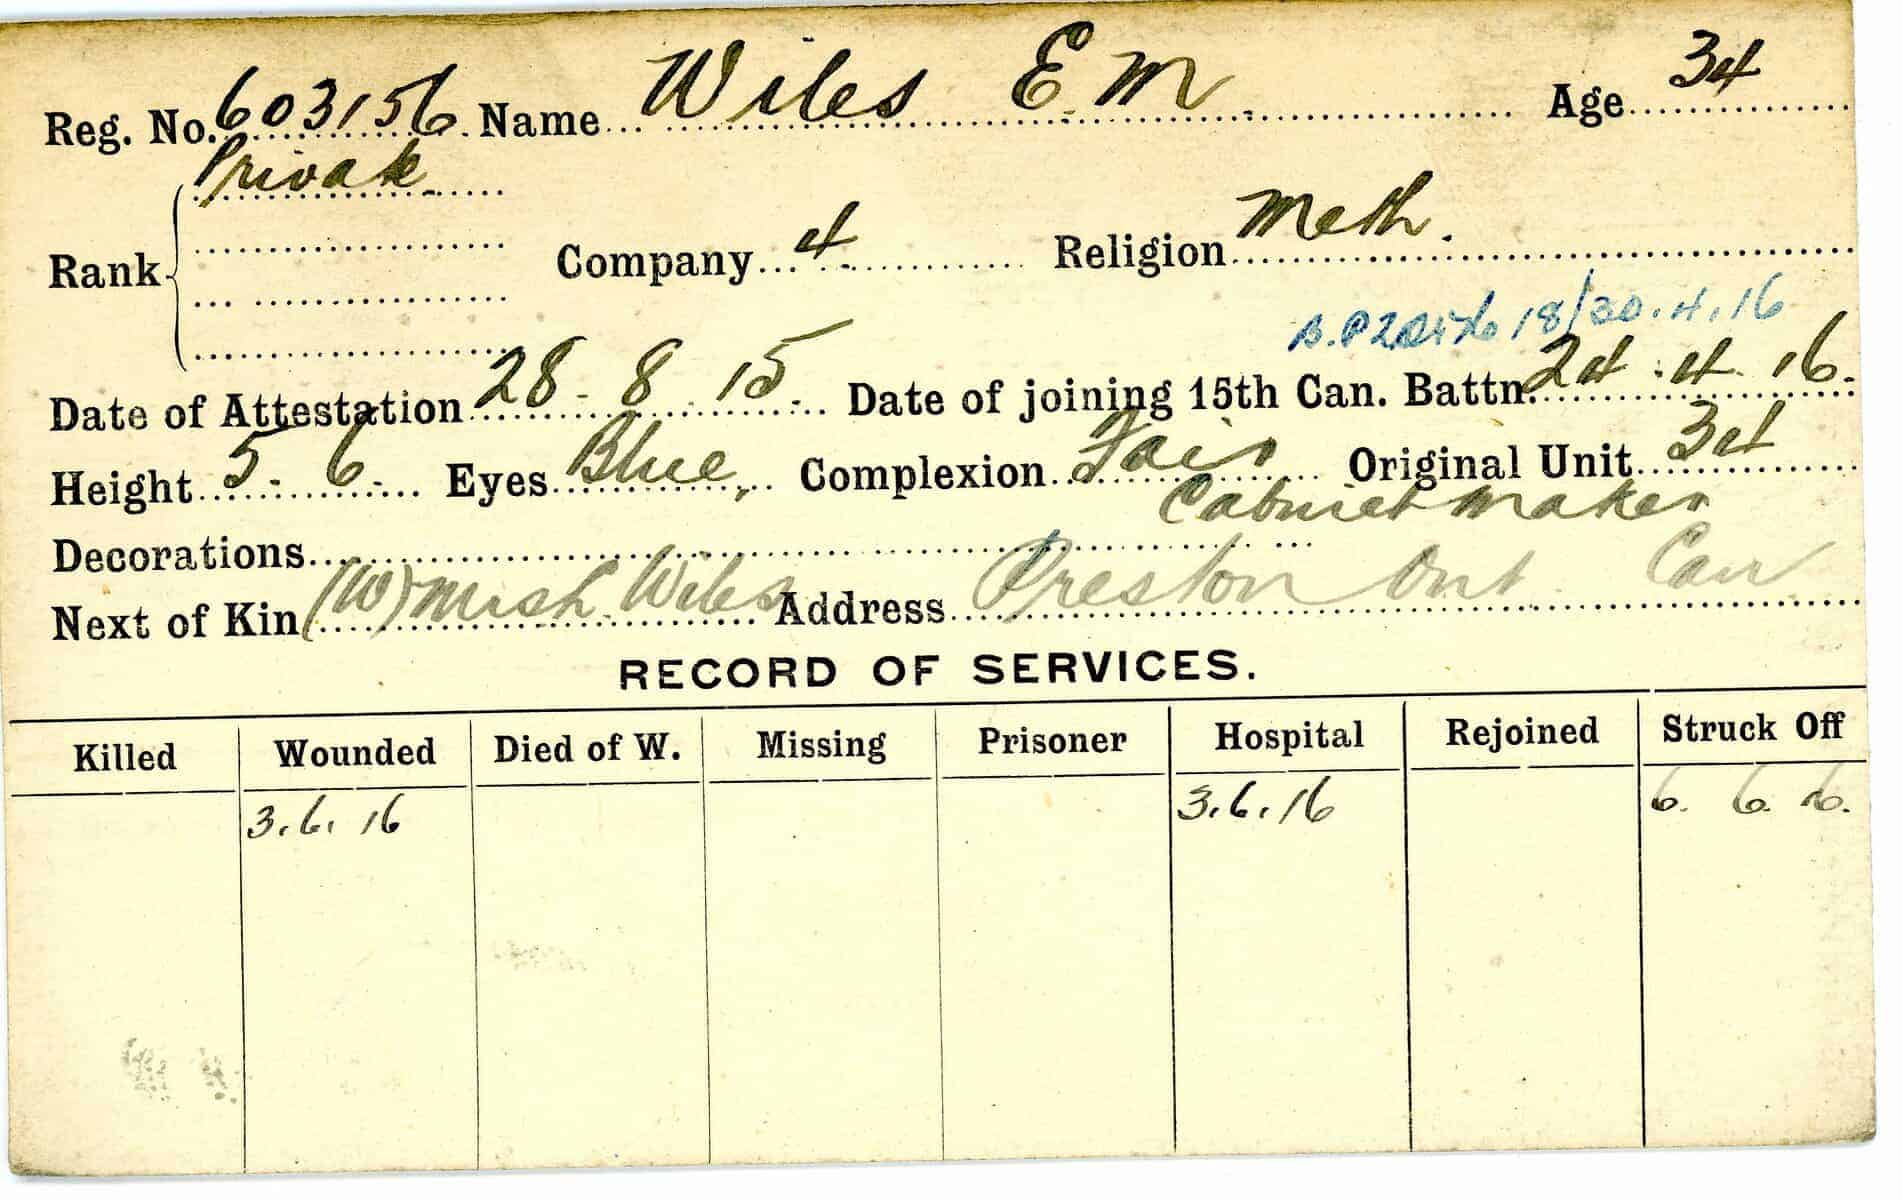 Reg. No. 603156 Name Wiles E. M. Age 34
Private
Rank Company 4 Religion Meth.
18/30.4.16
Date of Attestation 28 - 8 - 15 Date of joining 15th Can. Battn. 24 . 4 . 16
Height 5 - 6 Eyes Blue, Complexion Fair Original Unit 34
Cabinet Maker
Decorations
Next of Kin (W) Wiles Address Preston Ont Can
RECORD OF SERVICES.
Killed Wounded Died of W. Missing Prisoner Hospital Rejoined Struck Off
3.6.16 3.6.16 6. 6. 16.